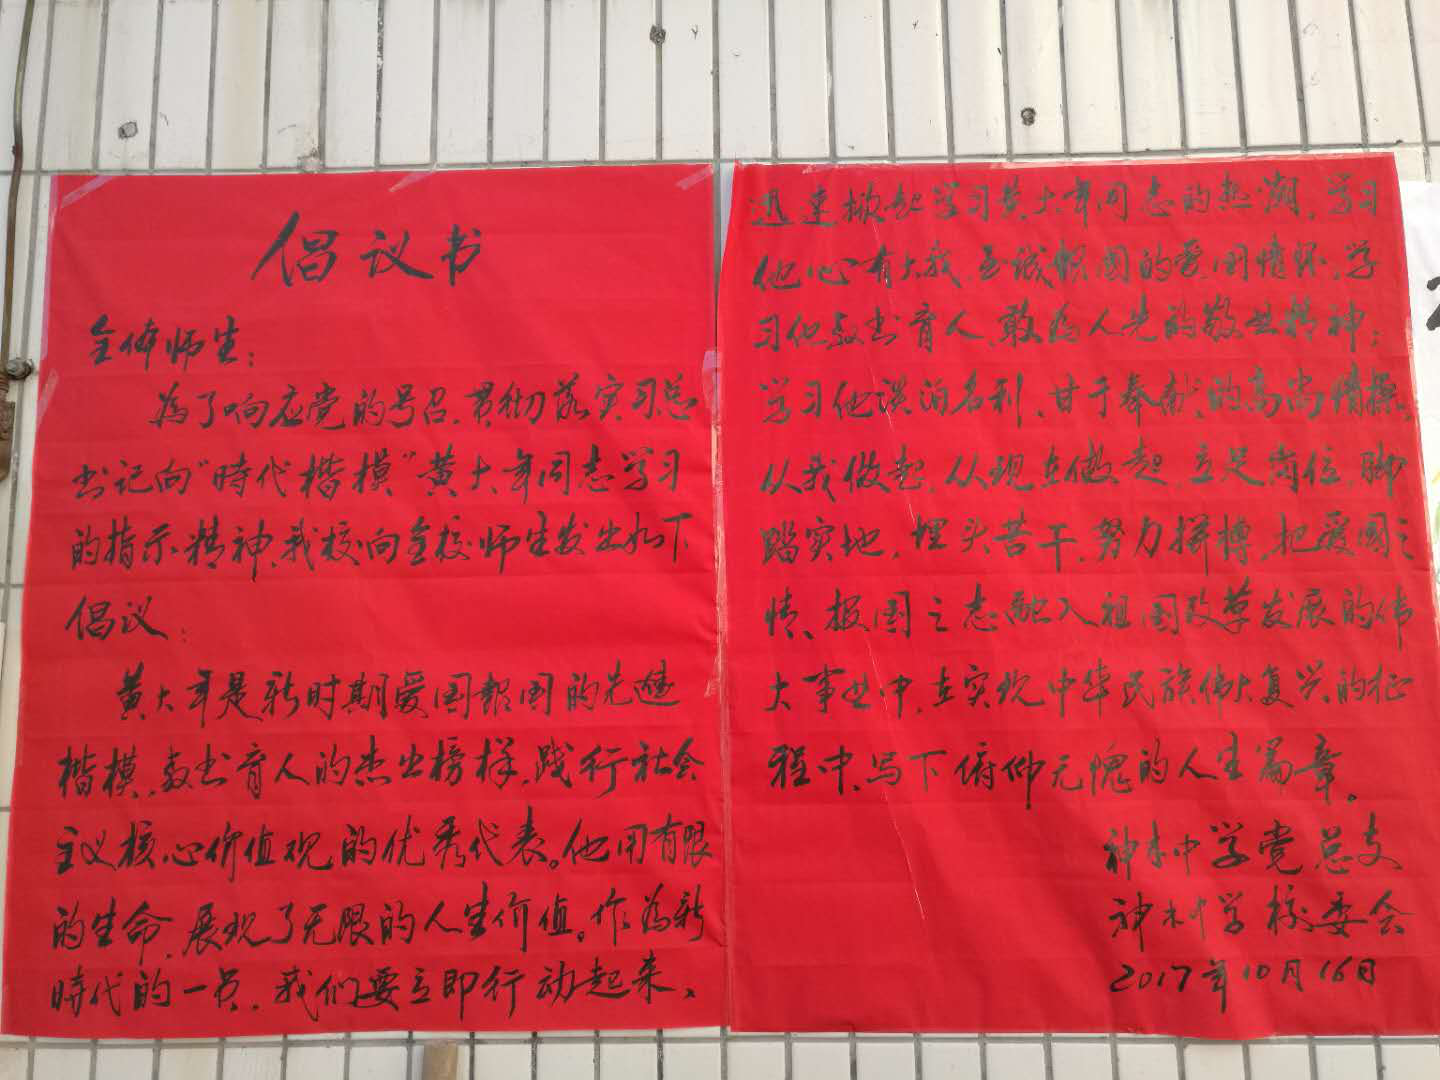 倡议书
全体师生：
为了响应党的号召，贯彻落实习总
书记向“時代楷模”黄大年同志学习
的指示精神，我校向全校师生发出如下
倡议：
黄大年是新时期爱国報国的先进
楷模，教书育人的杰出榜样，践行社会
主义核心价值观的优秀代表。他用有限
的生命，展现了无限的人生价值。作为新
時代的一员，我们要立即行动起来、
迅速掀起学习黄大年同志的热潮，学习
他心有大我、至诚報国的爱国情怀，学
习他教书育人、敢为人先的敬业精神；
学习他淡泊名利、甘于奉献的高尚情操。
从我做起，从现在做起，立足岗位，脚
踏实地，埋头苦干，努力拼搏，把爱国之
情、报国之志融入祖国改革发展的伟
大事业中，在实现中华民族伟大复兴的征
程中，写下俯仰无愧的人生篇章。
神木中学党总支
神木中学校委会
2017年10月16日